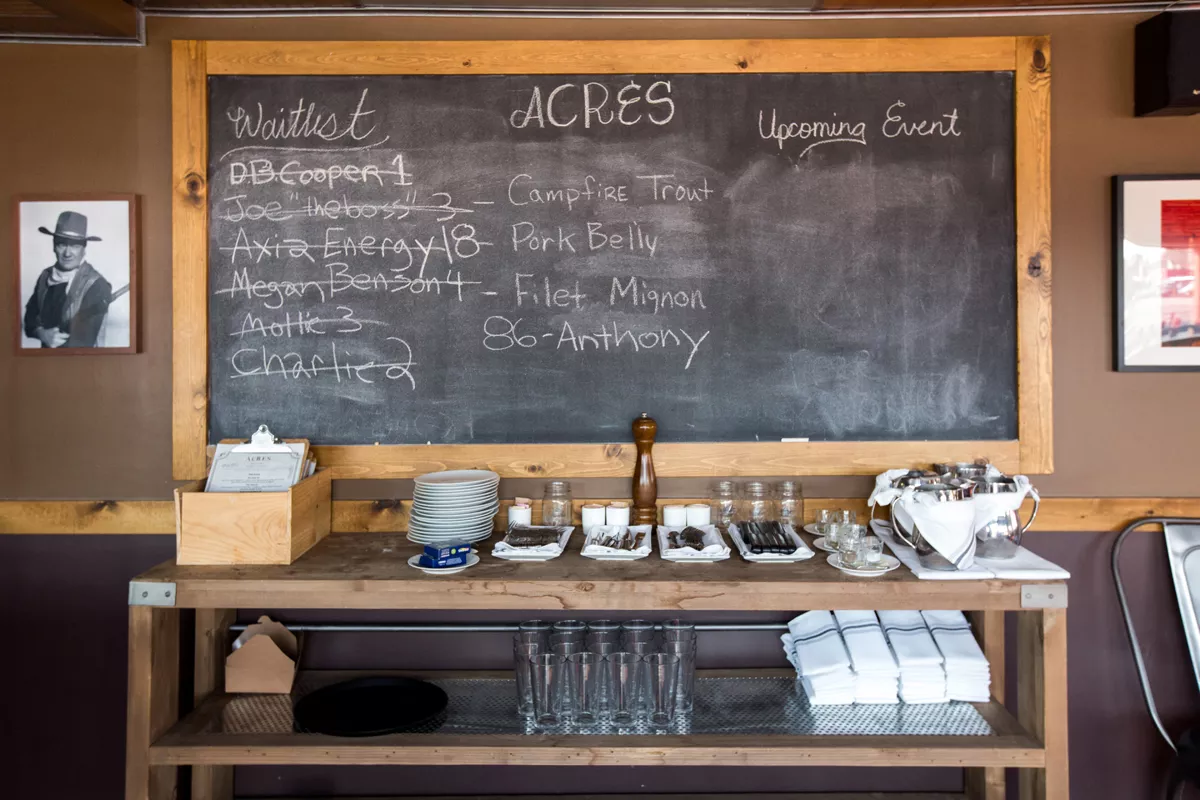 ACRES
Waitlist
D.B. Cooper 1
Joe "the boss" 3
Axia Energy 18
Megan Benson 4
Mollie 3
Charlie 2
- Campfire Trout
- Pork Belly
- Filet Mignon
86-Anthony
Upcoming Event
ACRES